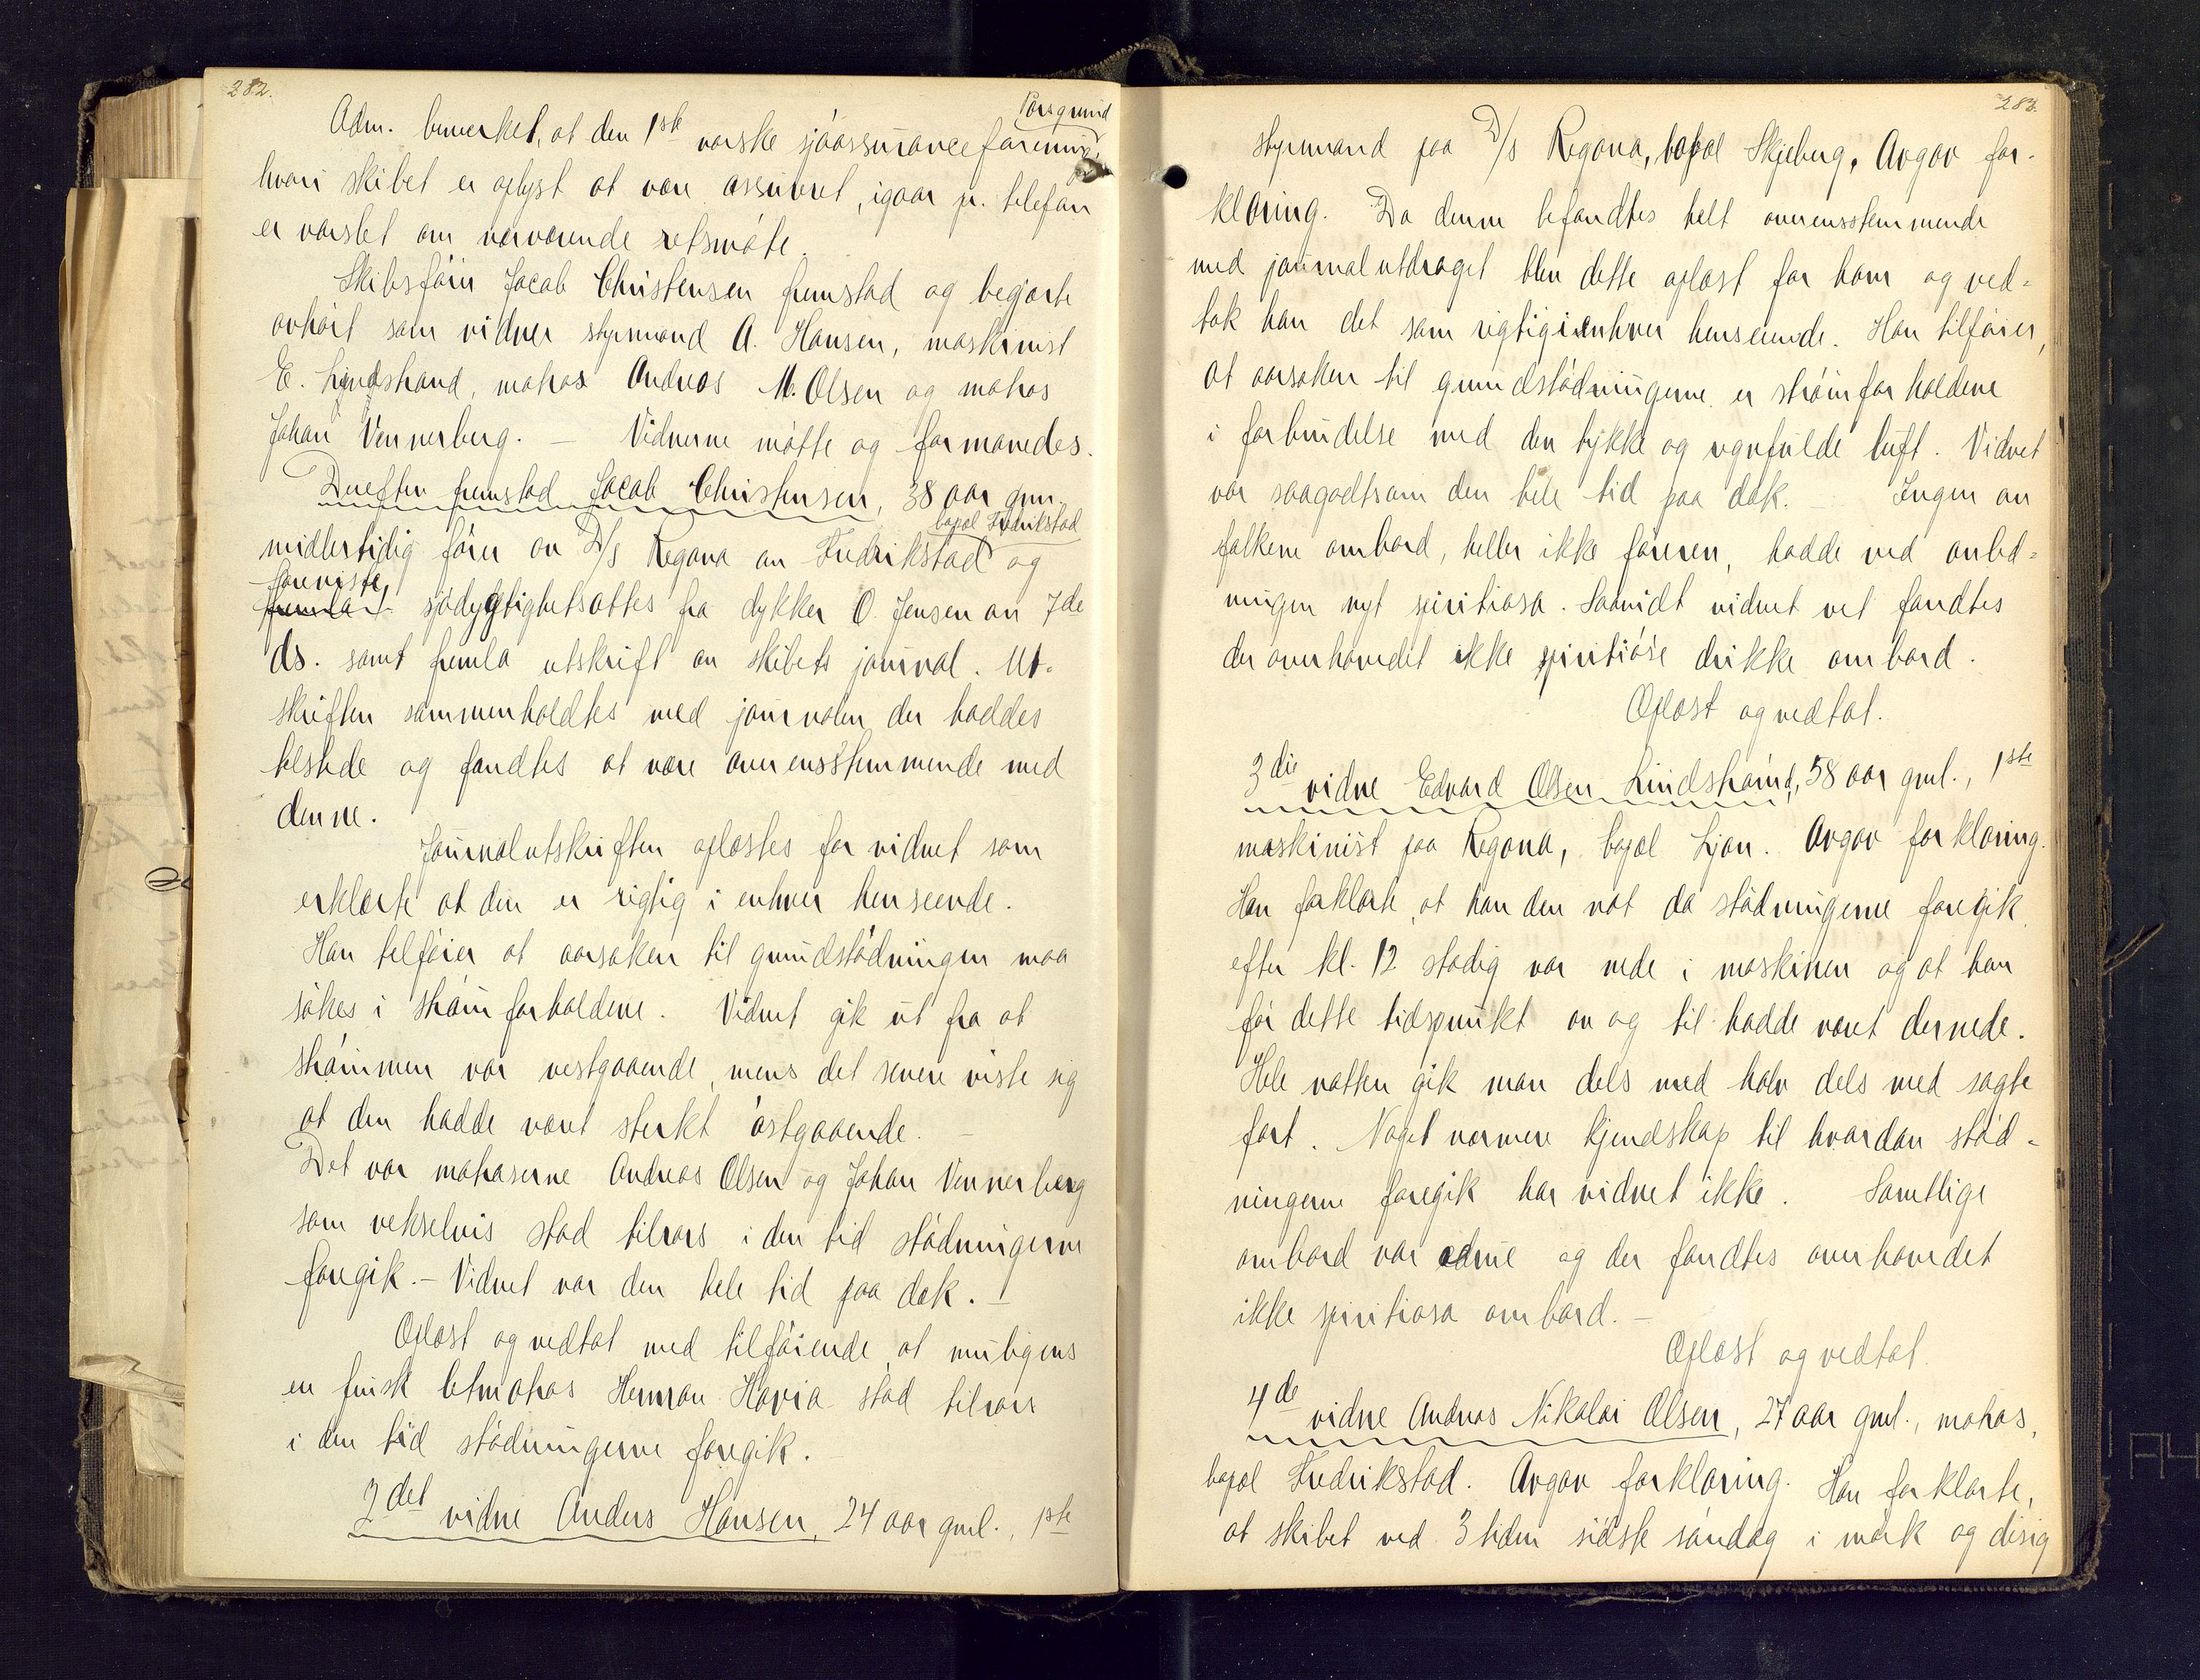 282.
Adm. bemerket, at den 1ste norske sjóassuranceforening,
Porsgrund
hvori skibet er oplyst at være assurert, igaar pr. telefon
er varslet om nærværende retsmóte.
Skibsfórer Jacob Christensen fremstod og begjærte
avhórt som vidner styrmand A. Hansen, maskinist
E. Lindstrand, matros Andreas M. Olsen og matros
Johan Vennerberg. — Vidnerne mótte og formanedes.
Derefter fremstod Jacob Christensen, 38 aar gml.
bopæl Fredrikstad
midlertidig fórer av D/s Regona av Fredrikstad og
foreviste
fremla sjódygtighetsattest fra dykker O. Jensen av 7de
ds. samt fremla utskrift av skibets journal. Ut-
skriften sammenholdtes med journalen der haddes
tilstede og fandtes at være overensstemmende med
denne.
Journalutskriften oplæstes for vidnet som
erklærte at den er rigtig i enhver henseende.
Han tilfóier at aarsaken til grundstódningen maa
sókes i strómforholdene. Vidnet gik ut fra at
strómmen var vestgaaende, mens det senere viste sig
at den hadde været sterkt óstgaaende. —
Det var matroserne Andreas Olsen og Johan Vennerberg
som vekselvis stod tilrors i den tid stódningerne
foregik. — Vidnet var den hele tid paa dæk. —
Oplæst og vedtat med tilfóiende, at muligens
en finsk letmatros Herman Havia stod tilrors
i den tid stódningerne foregik. —
2det vidne Anders Hansen, 24 aar gml., 1ste
283.
styrmand paa D/s Regona, bopæl Skjeberg. Avgav for-
klaring. Da denne befandtes helt overensstemmende
med journalutdraget blev dette oplæst for ham og ved-
tok han det som rigtig i enhver henseende. Han tilfóier,
at aarsaken til grundstódningerne er strómforholdene
i forbindelse med den tykke og regnfulde luft. Vidnet
var saagodtsom den hele tid paa dæk. — Ingen av
folkene ombord, heller ikke fóreren, hadde ved anled-
ningen nyt spirituosa. Saavidt vidnet vet fandtes
der overhovedet ikke spirituóse drikke ombord.
Oplæst og vedtat.
3die vidne Edvard Olsen Lindstrand, 58 aar gml., 1ste
maskinist paa Regona, bopæl Ljan. Avgav forklaring.
Han forklarte, at han den nat da stódningerne foregik
efter kl. 12 stadig var nede i maskinen og at han
fór dette tidspunkt av og til hadde været dernede.
Hele natten gik man dels med halv dels med sagte
fart. Noget nærmere kjendskap til hvordan stód-
ningerne foregik har vidnet ikke. Samtlige
ombord var ædrue og der fandtes overhovedet
ikke spirituosa ombord. —
Oplæst og vedtat.
4de vidne Andreas Nikolai Olsen, 27 aar gml., matros,
bopæl Fredrikstad. Avgav forklaring. Han forklarte,
at skibet ved 3 tiden sidste sóndag i mórk og disig